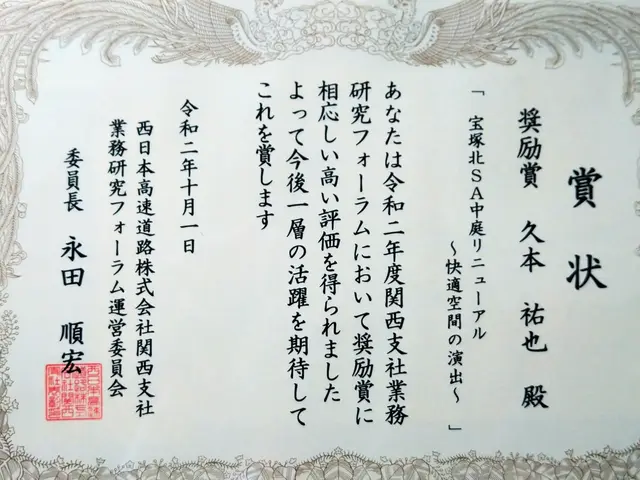 賞状
奨励賞 久本 祐也 殿
「 宝塚北SA中庭リニューアル
～快適空間の演出～ 」
あなたは令和二年度関西支社業務
研究フォーラムにおいて奨励賞に
相応しい高い評価を得られました
よって今後一層の活躍を期待して
これを賞します
令和二年十月一日
西日本高速道路株式会社関西支社
業務研究フォーラム運営委員会
委員長 永田 順宏